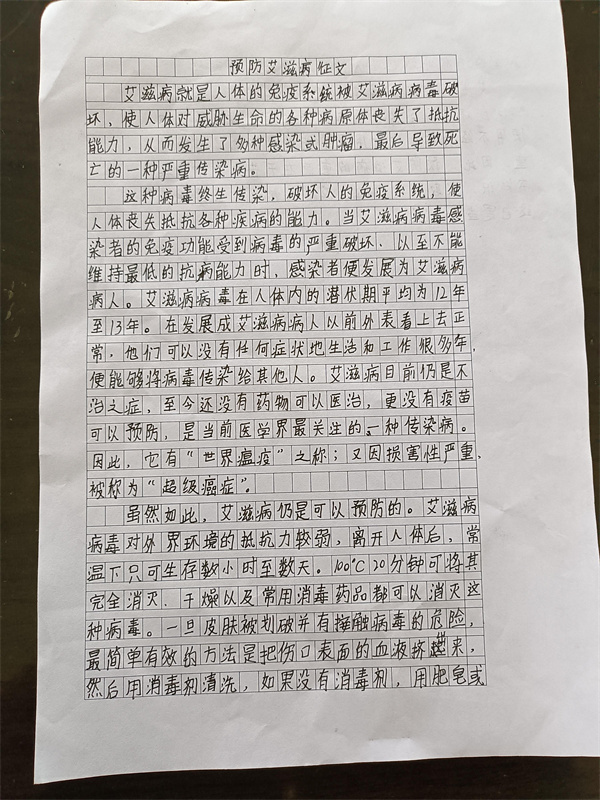 预防艾滋病征文
艾滋病就是人体的免疫系统被艾滋病病毒破
坏，使人体对威胁生命的各种病原体丧失了抵抗
能力，从而发生了多种感染或肿瘤，最后导致死
亡的一种严重传染病。
这种病毒终生传染，破坏人的免疫系统，使
人体丧失抵抗各种疾病的能力。当艾滋病病毒感
染者的免疫功能受到病毒的严重破坏、以至不能
维持最低的抗病能力时，感染者便发展为艾滋病
病人。艾滋病病毒在人体内的潜伏期平均为12年
至13年。在发展成艾滋病病人以前外表看上去正
常，他们可以没有任何症状地生活和工作很多年，
便能够将病毒传染给其他人。艾滋病目前仍是不
治之症，至今还没有药物可以医治，更没有疫苗
可以预防，是当前医学界最关注的一种传染病。
因此，它有“世界瘟疫”之称；又因损害性严重，
被称为“超级癌症”。
虽然如此，艾滋病仍是可以预防的。艾滋病
病毒对外界环境的抵抗力较弱，离开人体后，常
温下只可生存数小时至数天。100℃20分钟可将其
完全消灭，干燥以及常用消毒药品都可以消灭这
种病毒。一旦皮肤被划破并有接触病毒的危险，
最简单有效的方法是把伤口表面的血液挤出来，
然后用消毒剂清洗，如果没有消毒剂，用肥皂或